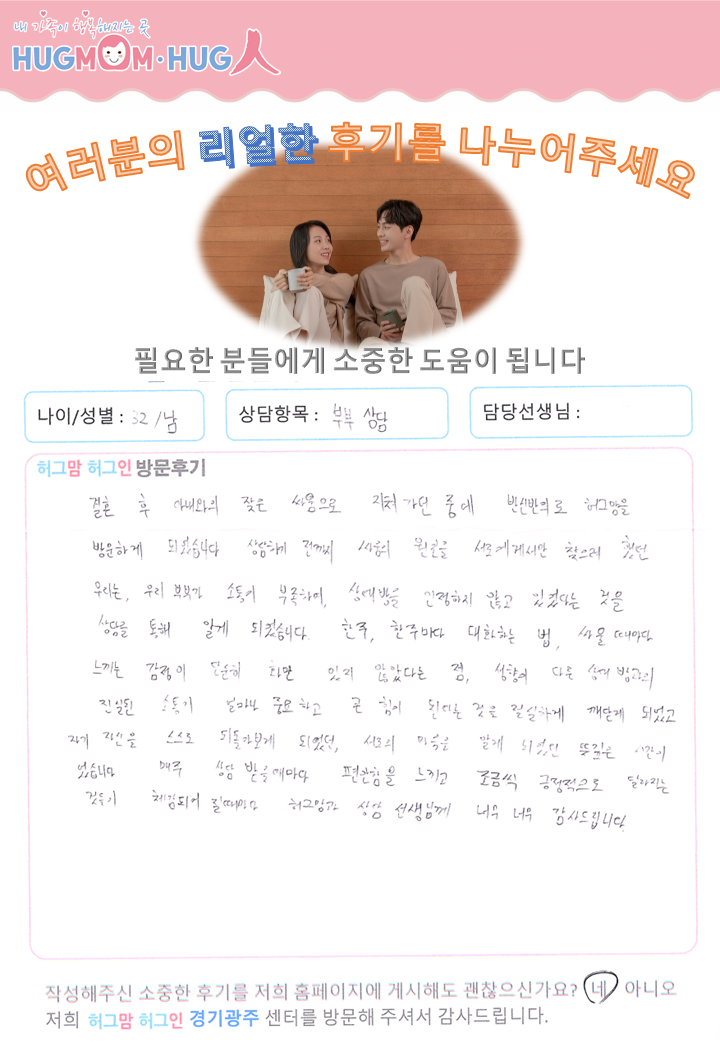 내 가족이 행복해지는 곳
HUGMOM·HUG人
여러분의 리얼한 후기를 나누어주세요
필요한 분들에게 소중한 도움이 됩니다
나이/성별 : 32 /남
상담항목 : 부부 상담
담당선생님 :
허그맘 허그인 방문후기
결혼 후 아내와의 잦은 싸움으로 지쳐가던 중에 반신반의로 허그맘을
방문하게 되었습니다 상담하기 전까지 싸움의 원인을 서로에게서만 찾으려 했던
우리는, 우리 부부가 소통이 부족하여, 상대방을 인정하지 않고 있었다는 것을
상담을 통해 알게 되었습니다. 한주, 한주마다 대화하는 법, 싸울때마다
느끼는 감정이 단순히 화만 있지 않았다는 점, 성향이 다른 상대방과의
진실된 소통이 얼마나 중요하고 큰 힘이 된다는 것을 절실하게 깨닫게 되었고
자기 자신을 스스로 되돌아보게 되었던, 서로의 마음을 알게 되었던 뜻깊은 시간이
었습니다 매주 상담 받을때마다 편안함을 느끼고 조금씩 긍정적으로 달라지는
것들이 체감되어 올때마다 허그맘과 상담 선생님께 너무 너무 감사드립니다.
작성해주신 소중한 후기를 저희 홈페이지에 게시해도 괜찮으신가요? 네 아니오
저희 허그맘 허그인 경기광주 센터를 방문해 주셔서 감사드립니다.